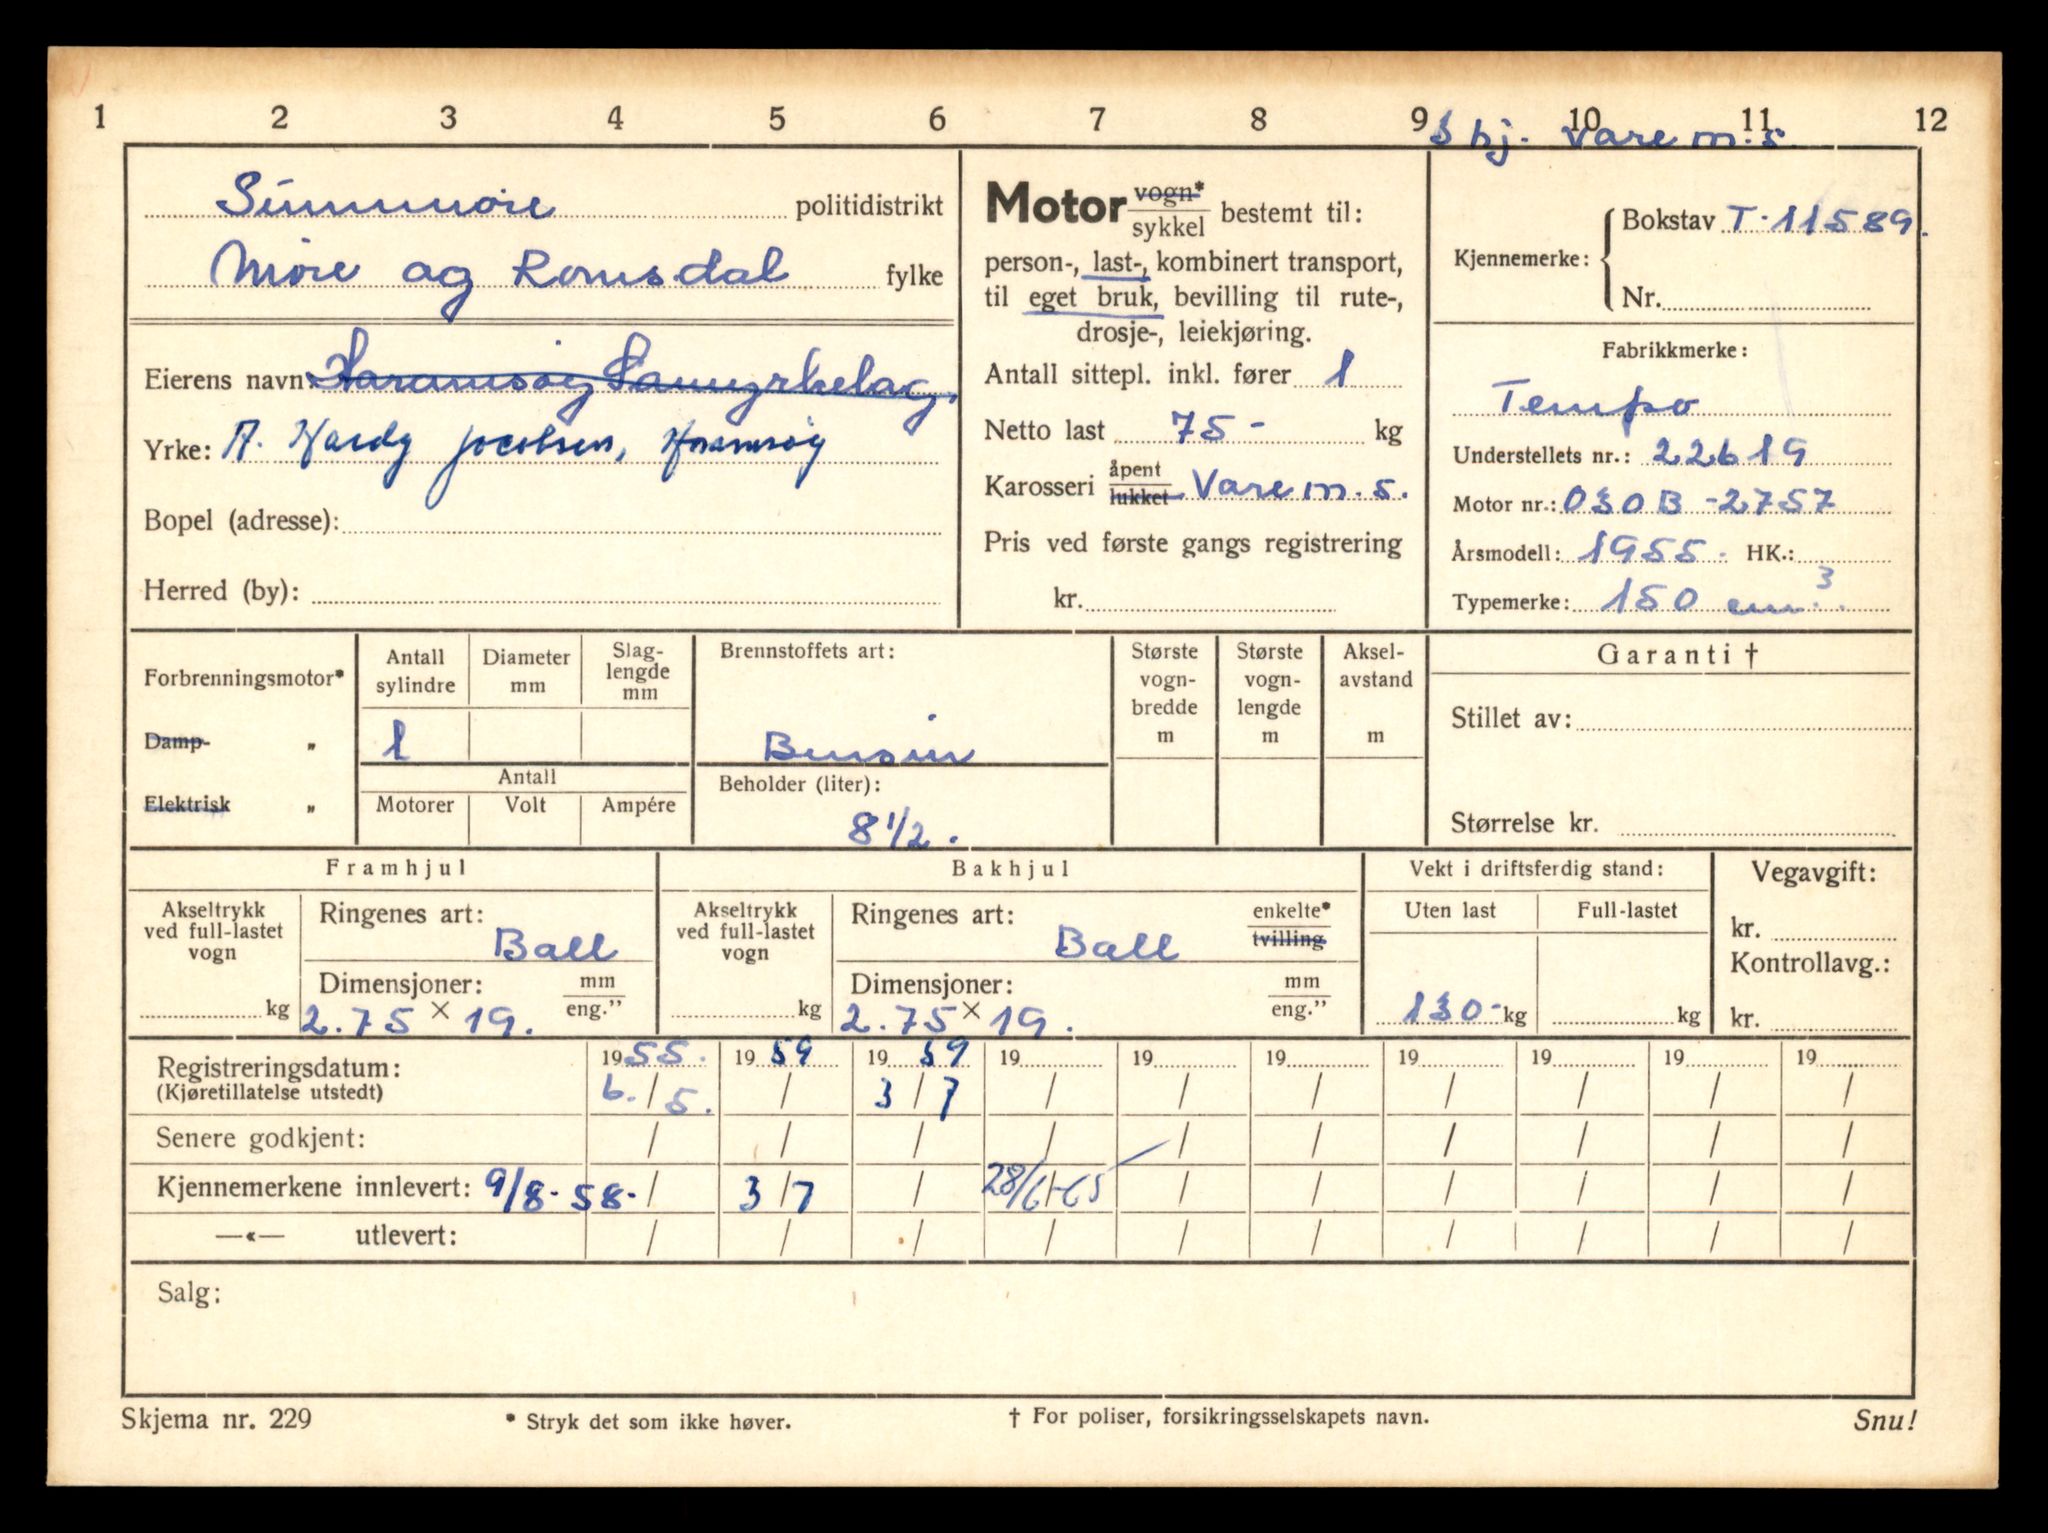 1 2 3 4 5 6 7 8 9 10 11 12
3 hj. Vare m.s.
Sunnmøre politidistrikt
Møre og Romsdal fylke
Eierens navn: Haramsøy Samyrkelag
Yrke: A. Hardy Jacobsen, Haramsøy
Bopel (adresse):
Herred (by):
Motor vogn*/sykkel bestemt til:
person-, last-, kombinert transport,
til eget bruk, bevilling til rute-,
drosje-, leiekjøring.
Antall sittepl. inkl. fører 1
Netto last 75 - kg
Karosseri åpent/lukket Vare m.s.
Pris ved første gangs registrering
kr.
Kjennemerke: Bokstav T-11589.
Nr.
Fabrikkmerke:
Tempo
Understellets nr.: 22619
Motor nr.: 030B-2757
Årsmodell: 1955. HK.:
Typemerke: 150 cm³.
Forbrenningsmotor*
Damp- "
Elektrisk "
Antall sylindre Diameter mm Slag-lengde mm
1
Antall
Motorer Volt Ampére
Brennstoffets art:
Bensin
Beholder (liter):
8 1/2.
Største vogn-bredde m
Største vogn-lengde m
Aksel-avstand m
Garanti †
Stillet av:
Størrelse kr.
Framhjul
Akseltrykk ved full-lastet vogn
kg
Ringenes art:
Ball
Dimensjoner: mm/eng."
2.75 × 19.
Bakhjul
Akseltrykk ved full-lastet vogn
kg
Ringenes art: enkelte*/tvilling
Ball
Dimensjoner: mm/eng."
2.75 × 19.
Vekt i driftsferdig stand:
Uten last Full-lastet
130- kg kg
Vegavgift:
kr.
Kontrollavg.:
kr.
Registreringsdatum: 1955. 1959 1959 19 19 19 19 19 19 19
(Kjøretillatelse utstedt) 6./5. / 3/7 / / / / / / /
Senere godkjent: / / / / / / / / / /
Kjennemerkene innlevert: 9/8-58- / 3/7 / 28/6-65 / / / / / /
—«— utlevert: / / / / / / / / / /
Salg:
Skjema nr. 229
* Stryk det som ikke høver.
† For poliser, forsikringsselskapets navn.
Snu!